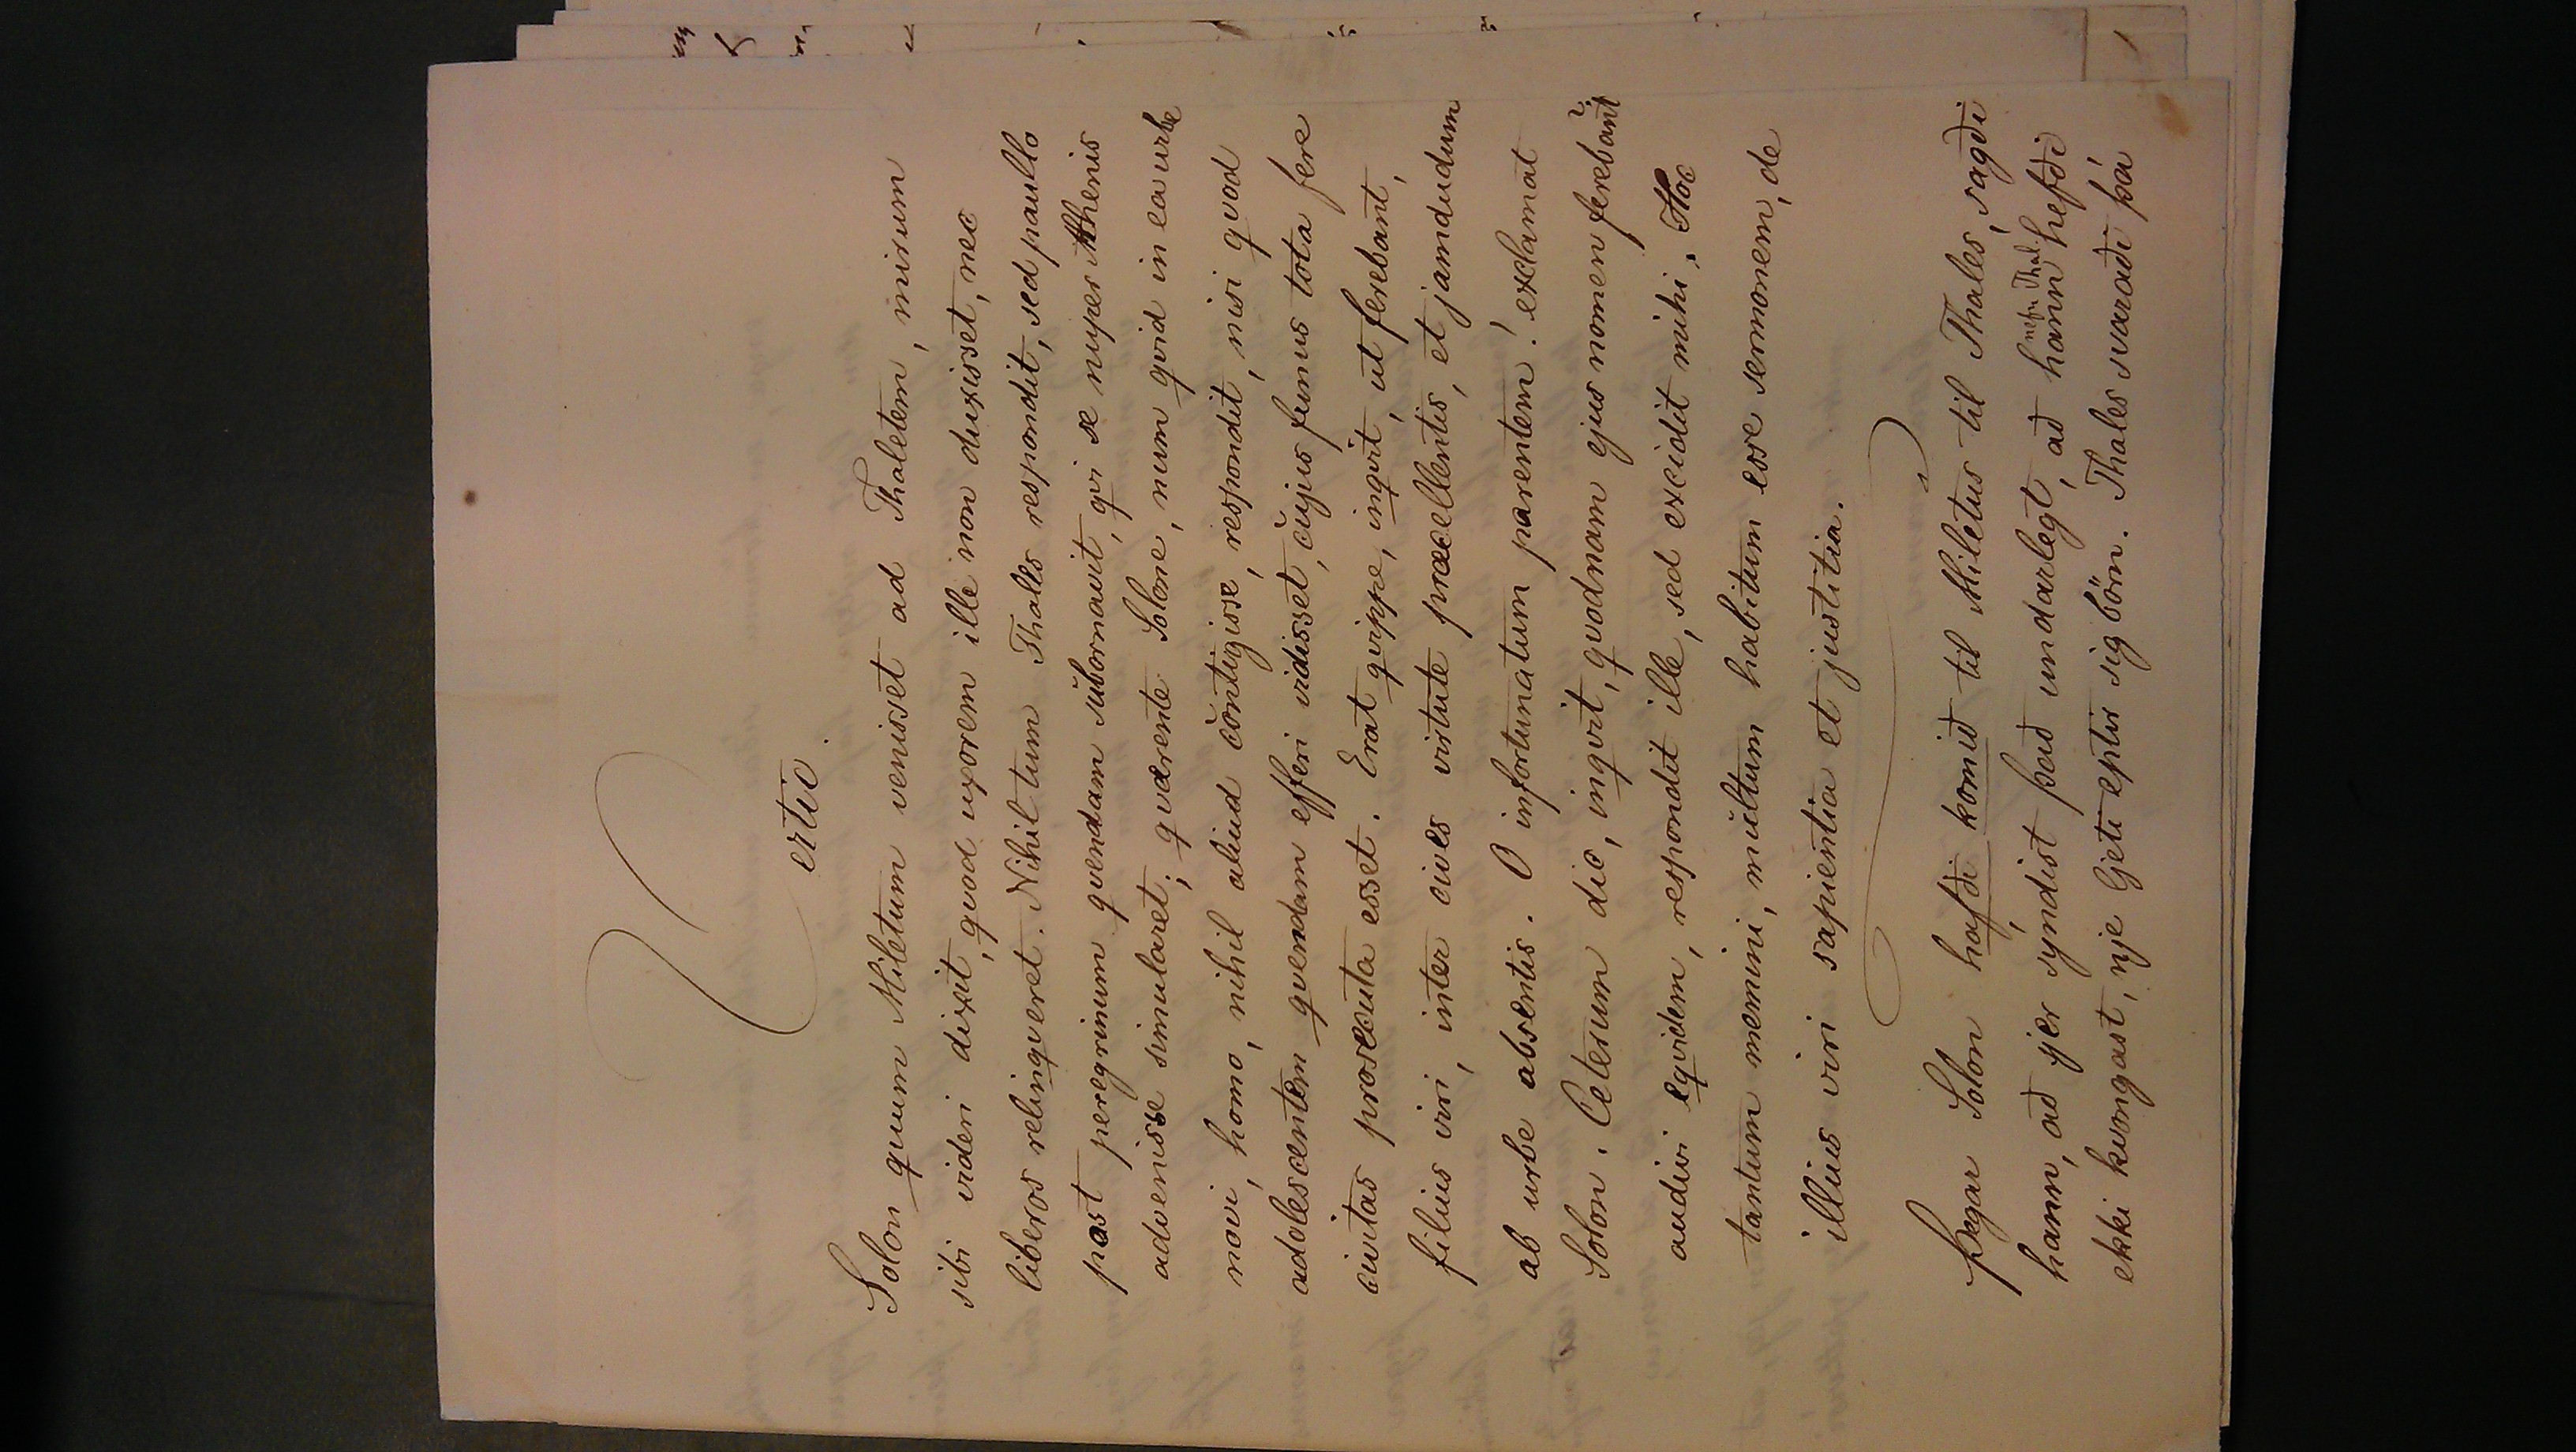 Versio.
Solon quum Miletum venisset ad Thaletem, mirum
sibi videri dixit, quod uxorem ille non duxisset, nec
liberos relinqveret. Nihil tum Thales respondit, sed paullo
post peregrinum qvendam subornavit, qvi se nuper Athenis
advenisse simularet; qværente Solone, num qvid in ea urbe
novi, homo, nihil aliud contigisse, respondit, nisi qvod
adolescentem qvendam efferi vidisset, cujus funus tota fere
civitas prosecuta esset. Erat qvippe, inqvit, ut ferebant,
filius viri, inter cives virtute præcellentis, et jamdudum
ab urbe absentis. O infortunatum parentem! exclamat
Solon. Ceterum dic, inqvit, qvodnam ejus nomen ferebant
audivi eqvidem, respondit ille, sed excidit mihi. Hoc
tantum memini, multum habitum esse sermonem, de
illius viri sapientia et justitia.
Þegar Solon hafði komið til Miletus til Thales, sagði
hann, að sjer sýndist það undarlegt, að hann hefði
ekki kvongast, nje ljeti eptir sig börn. Thales svaraði þá